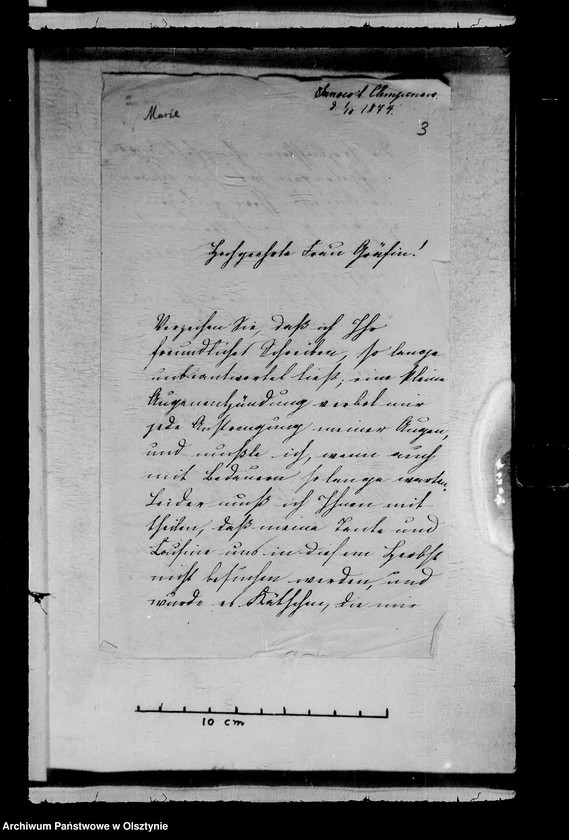 d. 1/10 1874.
Marie
3
Hochgeehrte Frau Gräfin!
Verzeihen Sie, daß ich Ihr
freundliches Schreiben, so lange
unbeantwortet ließ; eine kleine
Augenentzündung verbot mir
jede Anstrengung meiner Augen,
und mußte ich, wenn auch
mit Bedauern so lange warten.
Leider muß ich Ihnen mit
theilen, daß meine Tante und
Cousine uns in diesem Herbst
nicht besuchen werden, und
wurde es Käthchen, die mir
10 cm
Archiwum Państwowe w Olsztynie